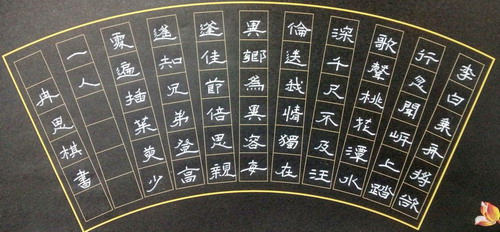 李白乘舟將欲
行忽聞岍上踏
歌聲桃花潭水
深千尺不及汪
倫送我情獨在
異鄉為異客每
逢佳節倍思親
遙知兄弟登高
處遍插茱萸少
一人
冉思棋書